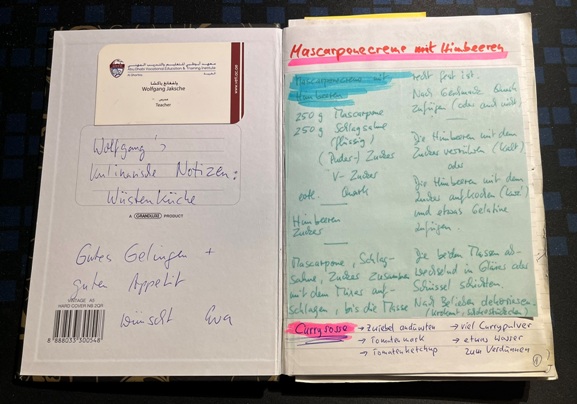 Abu Dhabi Vocational Education & Training Institute
Wolfgang Jaksche
Teacher
Wolfgang's
kulinarische Notizen:
Wüstenküche
A GRANDLUXE PRODUCT
Gutes Gelingen +
guten Appetit
wünscht Eva
VINTAGE A5
HARD COVER NB 2QR
8 888033 300548
Mascarponecreme mit Himbeeren
Mascarponecreme mit
Himbeeren
250 g Mascarpone
250 g Schlagsahne
(flüssig)
(Puder-) Zucker
V-Zucker
evtl. Quark
Himbeeren
Zucker
Mascarpone, Schlag-
sahne, Zucker zusammen
mit dem Mixer auf-
schlagen, bis die Masse
recht fest ist.
Nach Geschmack Quark
zufügen (oder auch nicht)
Die Himbeeren mit dem
Zucker verrühren (kalt)
oder
Die Himbeeren mit dem
Zucker aufkochen
und etwas Gelatine
zufügen.
Die beiden Massen ab-
wechselnd in Gläser oder
Schüssel schichten
Nach Belieben dekorieren
Currysosse
→ Zwiebel andünsten
→ Tomatenmark
→ Tomatenketchup
→ viel Currypulver
→ etwas Wasser
zum Verdünnen
1